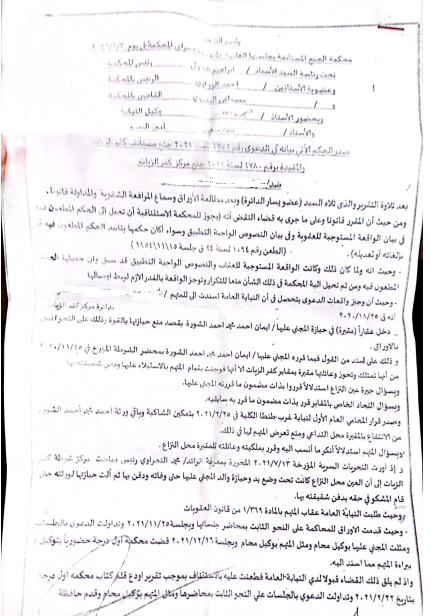 باسم الشعب
محكمة الجنح المستأنفة بجلستها العلنية المنعقدة بسراى المحكمة فى يوم
تحت رئاسة السيد الأستاذ / ابراهيم رئيس المحكمة
وعضوية الأستاذين / احمد الرئيس بالمحكمة
و / مصطفى القاضى بالمحكمة
وبحضور الأستاذ / وكيل النيابة
والأستاذ / أمين السر
صدر الحكم الآتى بيانه فى الدعوى رقم لسنة ٢٠٢١ جنح مستأنف كفر الزيات
والمقيدة برقم ٤٧٨٠ لسنة ٢٠٢١ جنح مركز كفر الزيات
ضد/
بعد تلاوة التقرير والذى تلاه السيد (عضو يسار الدائرة) وبعد مطالعة الأوراق وسماع المرافعة الشفوية والمداولة قانونا.
ومن حيث أن المقرر قانونا وعلى ما جرى به قضاء النقض أنه (يجوز للمحكمة الاستئنافية أن تحيل الى الحكم المطعون فيه
فى بيان الواقعة المستوجبة للعقوبة وفى بيان النصوص الواجبة التطبيق وسواء أكان حكمها بتأييد الحكم المطعون فيه أو
بإلغائه أو تعديله). (الطعن رقم ١٠٩٤ لسنة ٢٤ ق جلسة ١٩٥٤/١١/١٥)
- وحيث انه ولما كان ذلك وكانت الواقعة المستوجبة للعقاب والنصوص الواجبة التطبيق قد سبق وان حصلها الحكم
المطعون فيه ومن ثم تحيل اليه المحكمة فى ذلك الشأن منعا للتكرار وتوجز الواقعة بالقدر اللازم لربط اوصالها
- وحيث أن وجيز واقعات الدعوى يتحصل فى أن النيابة العامة اسندت الى المتهم /
أنه فى ٢٠٢٠/١١/٢٥ بدائرة مركز كفر الزيات
_ دخل عقاراً (مقبرة) فى حيازة المجنى عليها / ايمان احمد محمد احمد الشورة بقصد منع حيازتها بالقوة وذلك على النحو المبين
بالاوراق.
و ذلك على سند من القول فيما قررة المجنى عليها / ايمان احمد محمد احمد الشورة بمحضر الشرطة المؤرخ فى ٢٠٢٠/١١/٢٥
من أنها تمتلك وتحوز وعائلتها مقبرة بمقابر كفر الزيات الا أنها فوجئت بقيام المتهم بالاستيلاء عليها ودفن شقيقته بها
وبسؤال جيرة عين النزاع استدلالاً قرروا بذات مضمون ما قررته المجنى عليها.
وبسؤال اللحاد الخاص بالمقابر قرر بذات مضمون ما قرر به سابقيه.
وصدر قرار المحامى العام الأول لنيابة غرب طنطا الكلية فى ٢٠٢١/٢/٢٥ بتمكين الشاكية وباقى ورثة أحمد محمد أحمد الشورة
من الانتفاع بالمقبرة محل التداعى ومنع تعرض المتهم لها فى ذلك.
وبسؤال المتهم استدلالاً أنكر ما أنسب اليه وقرر بملكيته وعائلته للمقبرة محل النزاع.
و إذ أورت التحريات السرية المؤرخة ٢٠٢١/٧/١٣ المحررة بمعرفة الرائد/ محمد النحراوى رئيس مباحث مركز شرطة كفر
الزيات إلى أن العين محل النزاع كانت تحت وضع يد وحيازة والد المجنى عليها حتى وفاته ودفن بها ثم آلت حيازتها لورثته حتى
قام المشكو فى حقه بدفن شقيقته بها.
وحيث طلبت النيابة العامة عقاب المتهم بالمادة ١/٣٦٩ من قانون العقوبات
- وحيث قدمت الاوراق للمحاكمة على النحو الثابت بمحاضر جلساتها وبجلسة ٢٠٢١/١١/٢٥ وتداولت الدعوى بالجلسات
ومثلت المجنى عليها بوكيل محام ومثل المتهم بوكيل محام وبجلسة ٢٠٢١/١٢/١٦ قضت محكمة أول درجة حضورياً بتوكيل /
ببراءة المتهم مما اسند اليه.
واذ لم يلق ذلك القضاء قبولا لدى النيابة العامة فطعنت عليه بالاستئناف بموجب تقرير اودع قلم كتاب محكمة اول درجة
بتاريخ ٢٠٢٢/٢/٢٢ وتداولت الدعوى بالجلسات على النحو الثابت بمحاضرها ومثل المتهم بوكيل محام وقدم حافظة